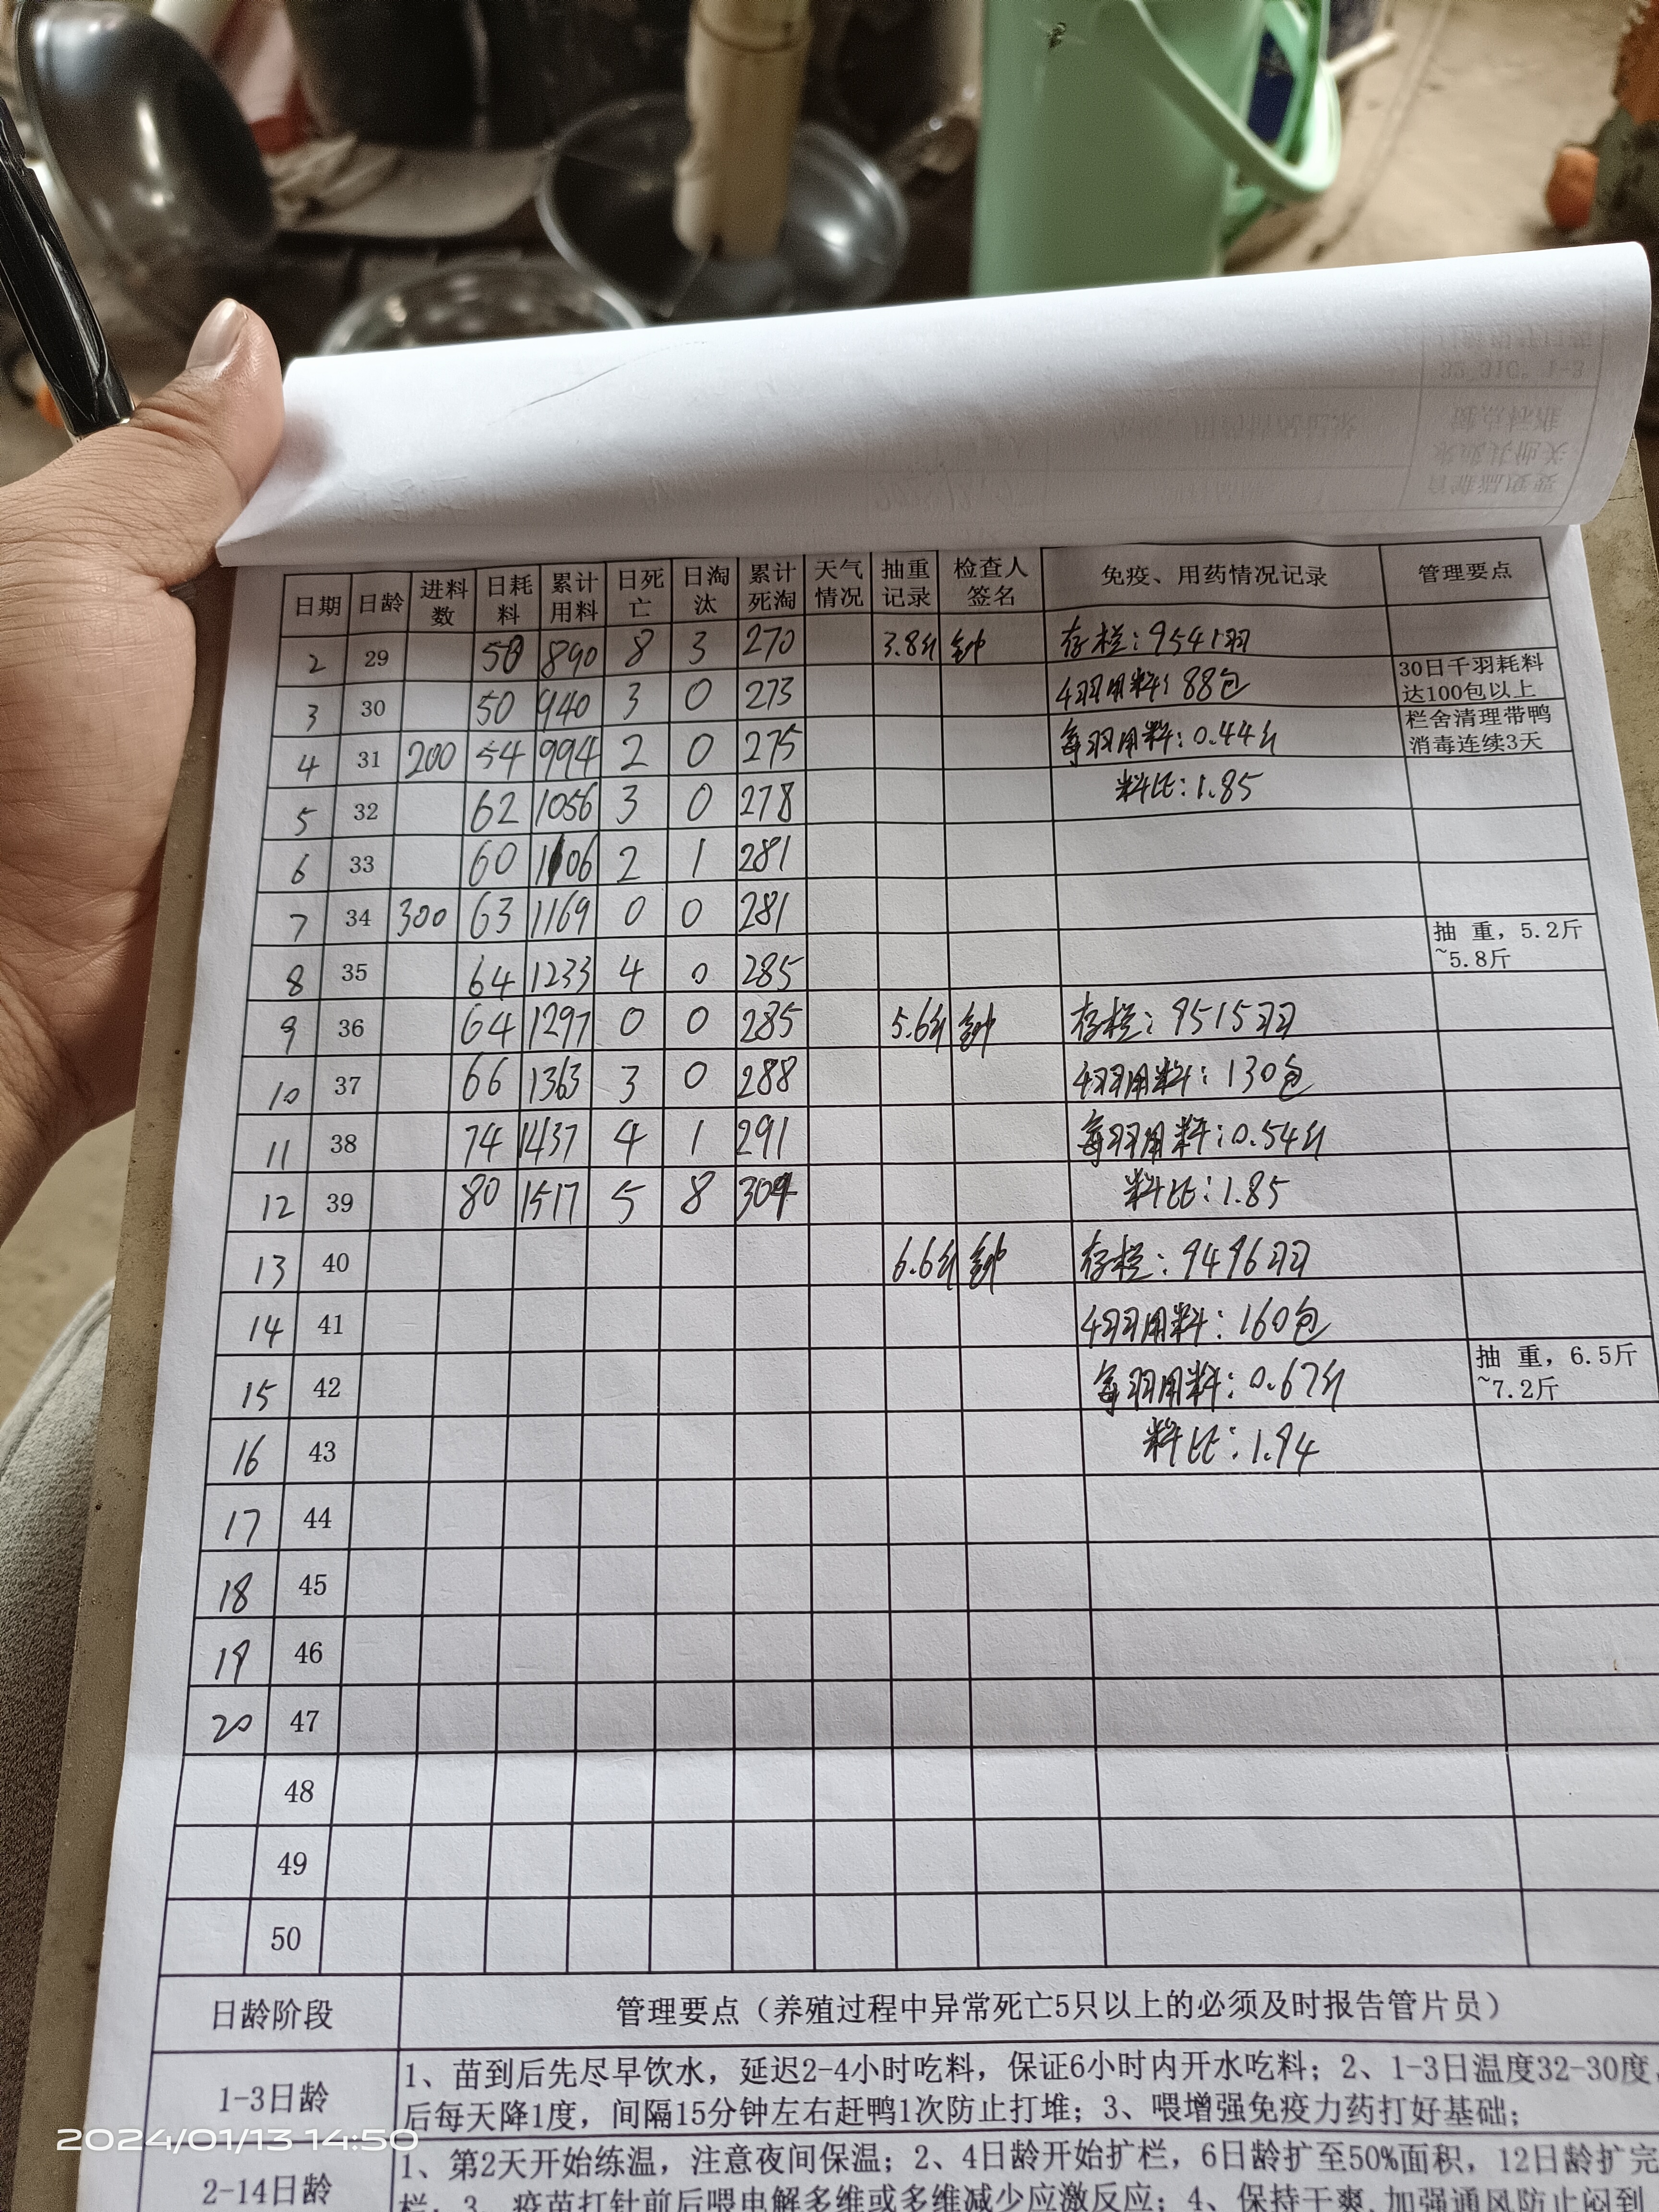 日期 日龄 进料数 日耗料 累计用料 日死亡 日淘汰 累计死淘 天气情况 抽重记录 检查人签名 免疫、用药情况记录 管理要点
2 29 50 890 8 3 270 3.8斤 钟 存栏:9541羽
3 30 50 940 3 0 273 4羽用料:88包 30日千羽耗料达100包以上
4 31 200 54 994 2 0 275 每羽用料:0.44斤 栏舍清理带鸭消毒连续3天
5 32 62 1056 3 0 278 料比:1.85
6 33 60 1106 2 1 281
7 34 300 63 1169 0 0 281
8 35 64 1233 4 0 285 抽 重,5.2斤~5.8斤
9 36 64 1297 0 0 285 5.6斤 钟 存栏:9515羽
10 37 66 1363 3 0 288 4羽用料:130包
11 38 74 1437 4 1 291 每羽用料:0.54斤
12 39 80 1517 5 8 304 料比:1.85
13 40 6.6斤 钟 存栏:9496羽
14 41 4羽用料:160包
15 42 每羽用料:0.67斤 抽 重,6.5斤~7.2斤
16 43 料比:1.94
17 44
18 45
19 46
20 47
48
49
50
日龄阶段 管理要点(养殖过程中异常死亡5只以上的必须及时报告管片员)
1-3日龄 1、苗到后先尽早饮水,延迟2-4小时吃料,保证6小时内开水吃料;2、1-3日温度32-30度,
后每天降1度,间隔15分钟左右赶鸭1次防止打堆;3、喂增强免疫力药打好基础;
2-14日龄 1、第2天开始练温,注意夜间保温;2、4日龄开始扩栏,6日龄扩至50%面积,12日龄扩完
栏;3、疫苗打针前后喂电解多维或多维减少应激反应;4、保持干爽,加强通风防止闷到
2024/01/13 14:50